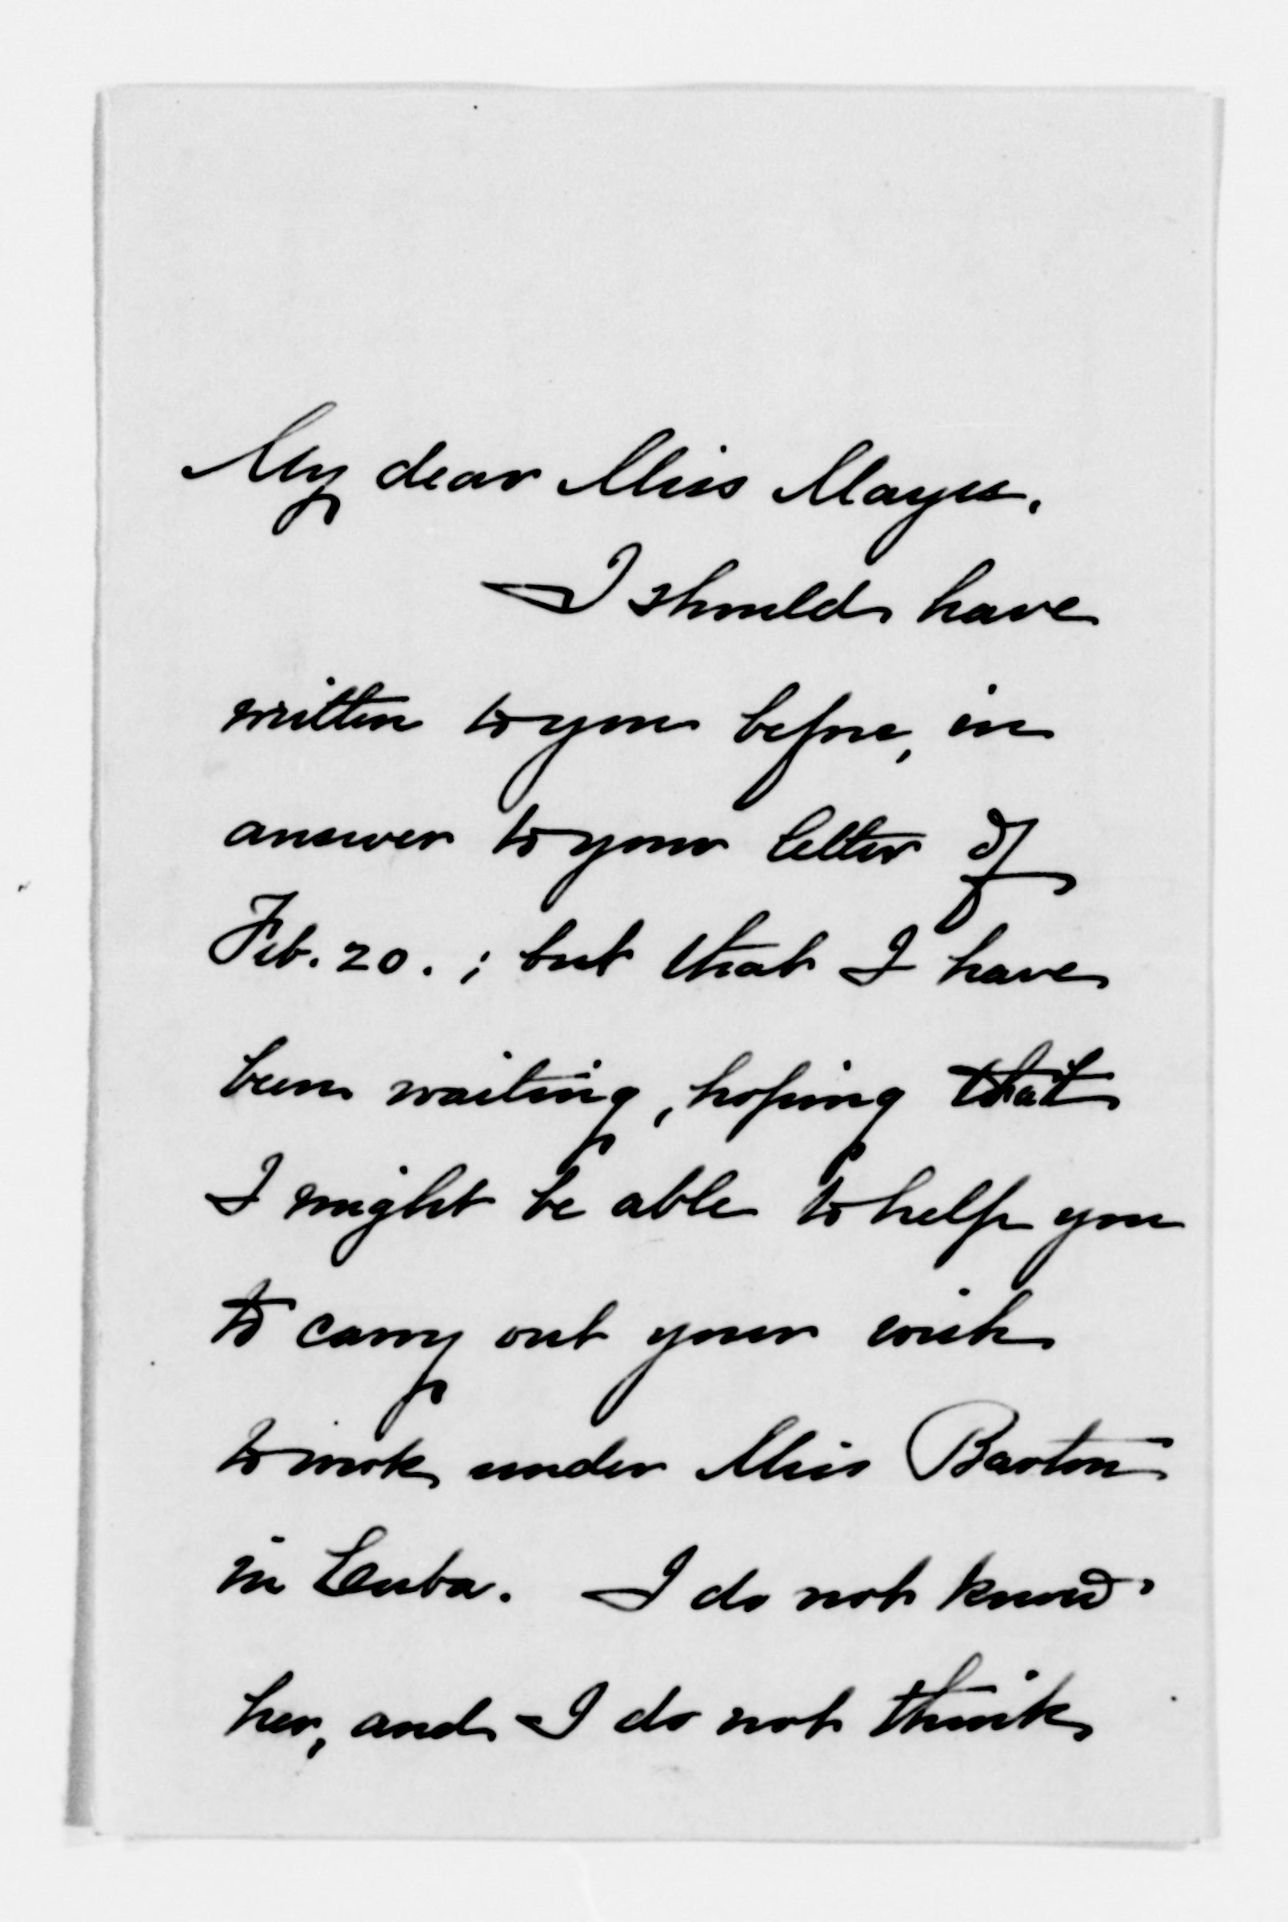 My dear Miss Mayes.
I should have
written to you before, in
answer to your letter of
Feb. 20. ; but that I have
been waiting, hoping that
I might be able to help you
to carry out your wish
to work under Miss Barton
in Cuba. I do not know
her, and I do not think